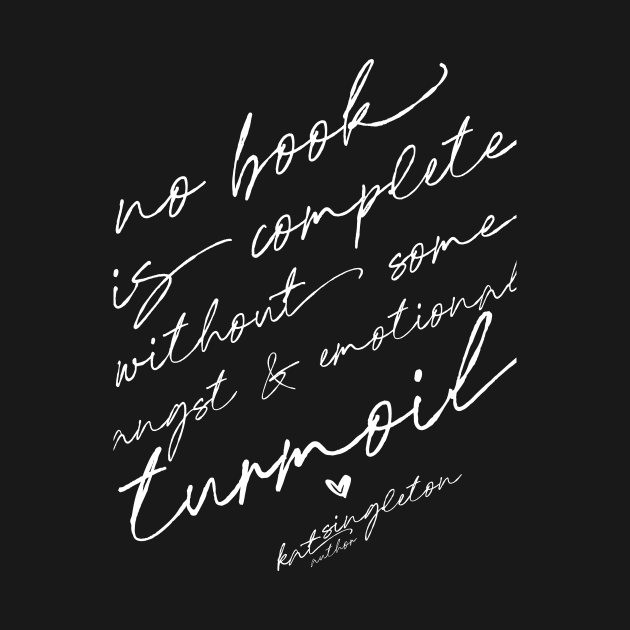 no book
is complete
without some
angst & emotional
turmoil
kat singleton
author